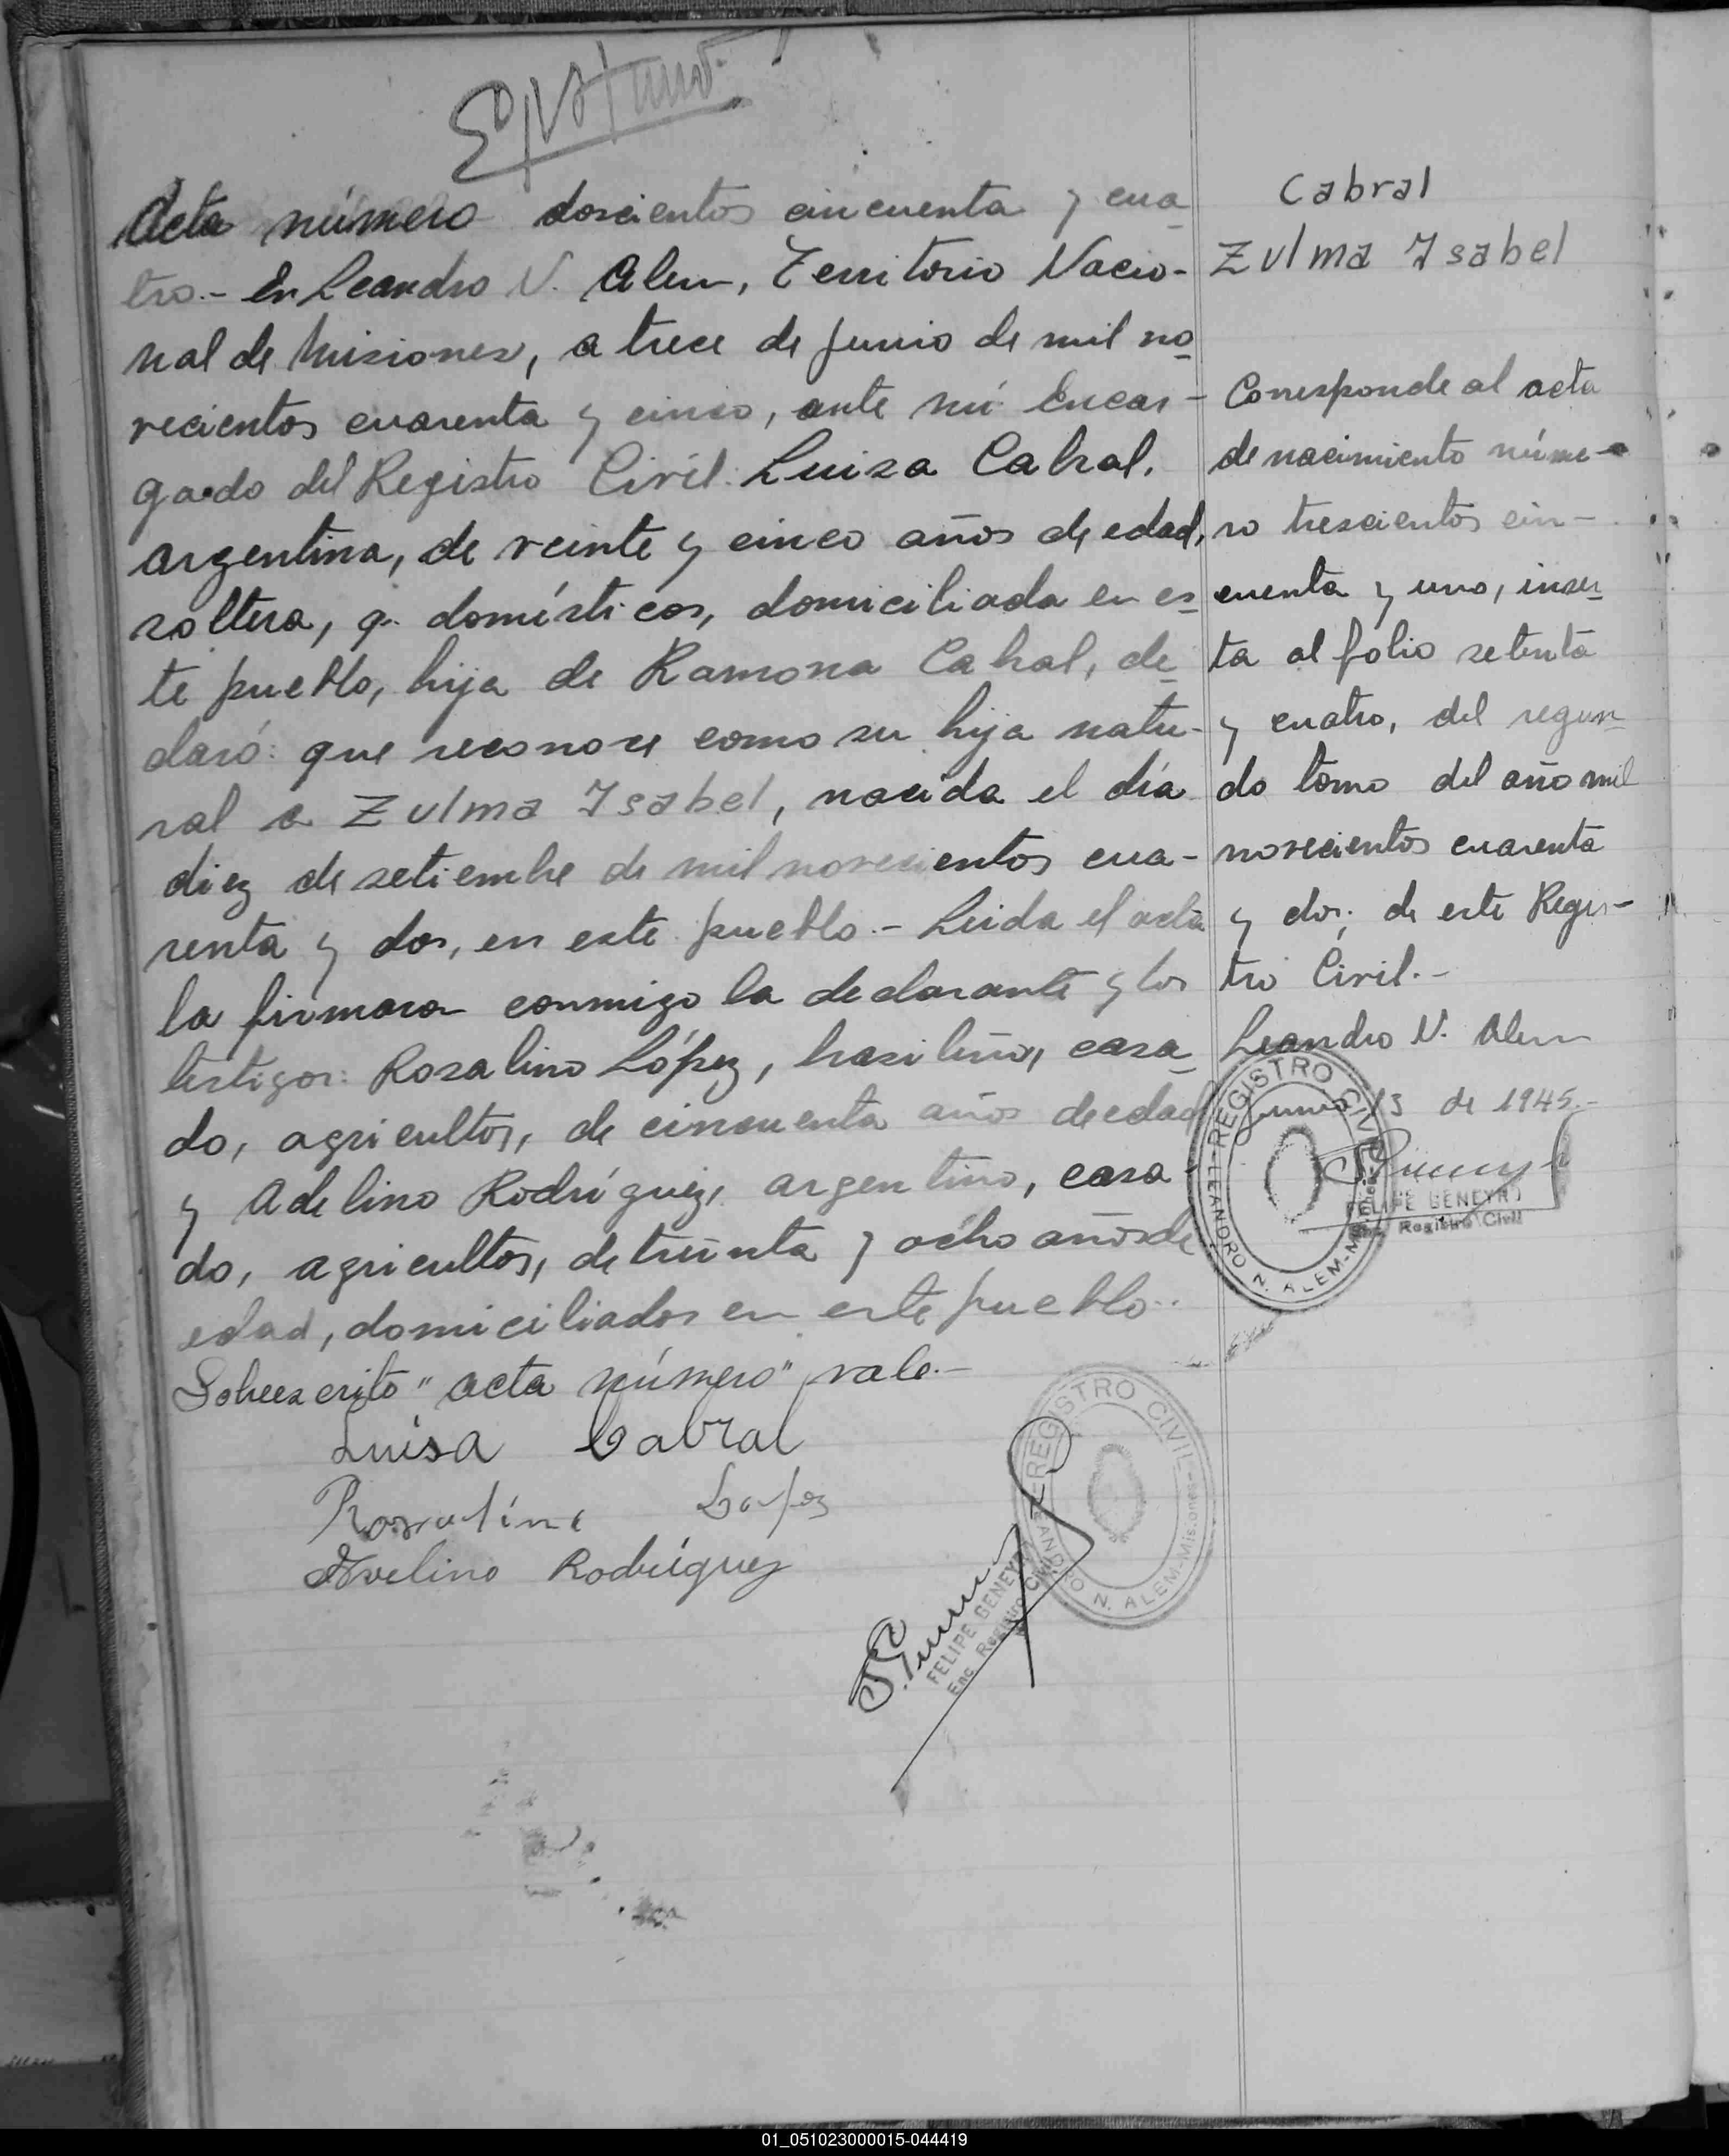 Acta número doscientos cincuenta y cua
tro.- En Leandro N. Alem, Territorio Nacio-
nal de Misiones, a trece de junio de mil no
vecientos cuarenta y cinco, ante mí Encar-
gado del Registro Civil: Luisa Cabral,
argentina, de veinte y cinco años de edad,
soltera, q. domésticos, domiciliada en es
te pueblo, hija de Ramona Cabral, de
claró: que reconoce como su hija natu-
ral a Zulma Isabel, nacida el día
diez de setiembre de mil novecientos cua-
renta y dos, en este pueblo.- Leida el acta
la firmaron conmigo la declarante y los
testigos: Rosalino López, brasileño, casa
do, agricultor, de cincuenta años de edad
y Adelino Rodríguez, argentino, casa
do, agricultor, de treinta y ocho años de
edad, domiciliados en este pueblo..
Sobreescrito "acta número" vale.-
Luisa Cabral
Rosalino Lopez
Avelino Rodríguez
FELIPE GENEYRO
Enc. Registro Civil
REGISTRO CIVIL
LEANDRO N. ALEM-Misiones
Cabral
Zulma Isabel
Corresponde al acta
de nacimiento núme-
ro trescientos cin-
cuenta y uno, inser
ta al folio setenta
y cuatro, del segun
do tomo del año mil
novecientos cuarenta
y dos, de este Regis-
tro Civil.-
Leandro N. Alem
junio 13 de 1945.-
FELIPE GENEYRO
Enc. Registro Civil
REGISTRO CIVIL
LEANDRO N. ALEM-Misiones
01_051023000015-044419